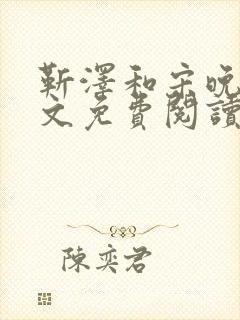 靳澤和宋晚
文免費閱讀
陳奕君